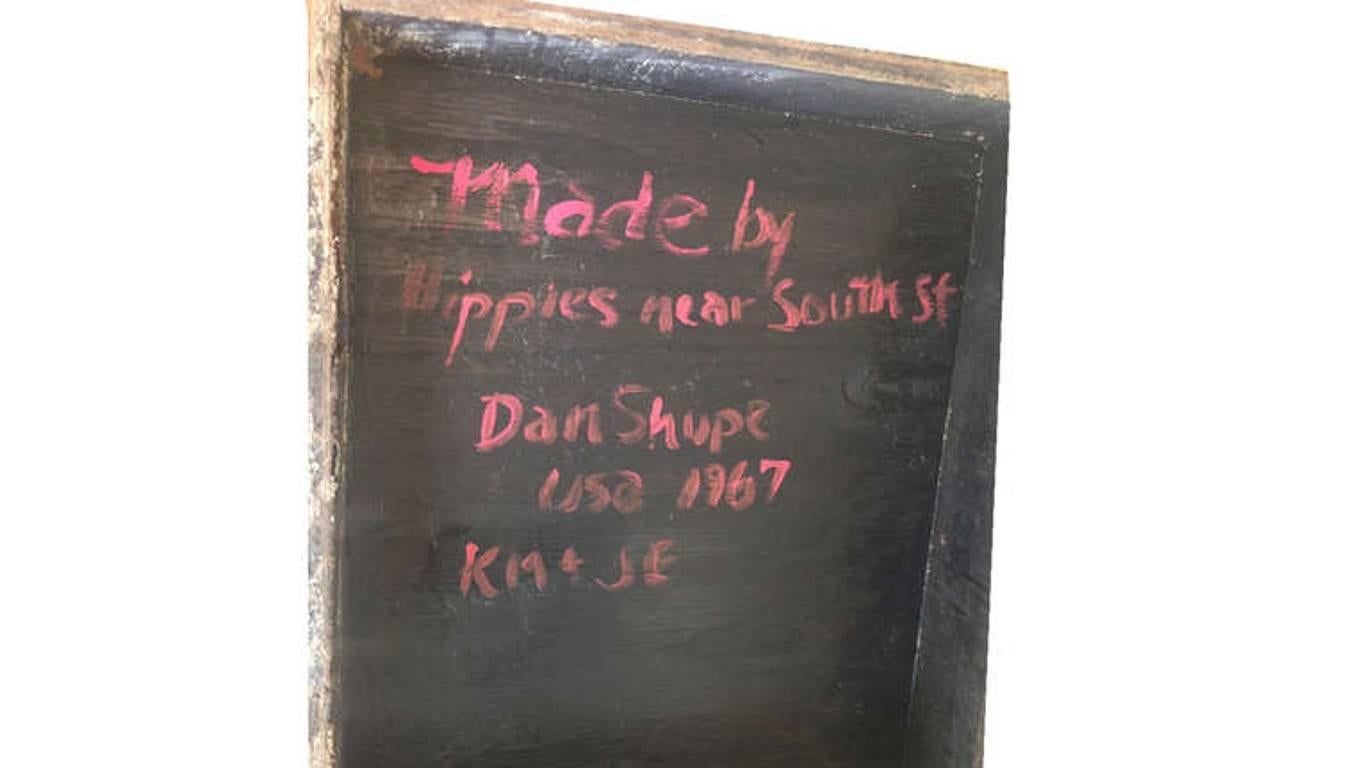 Made by
Hippies near South St
Dan Shupe
USa 1967
KM + JE